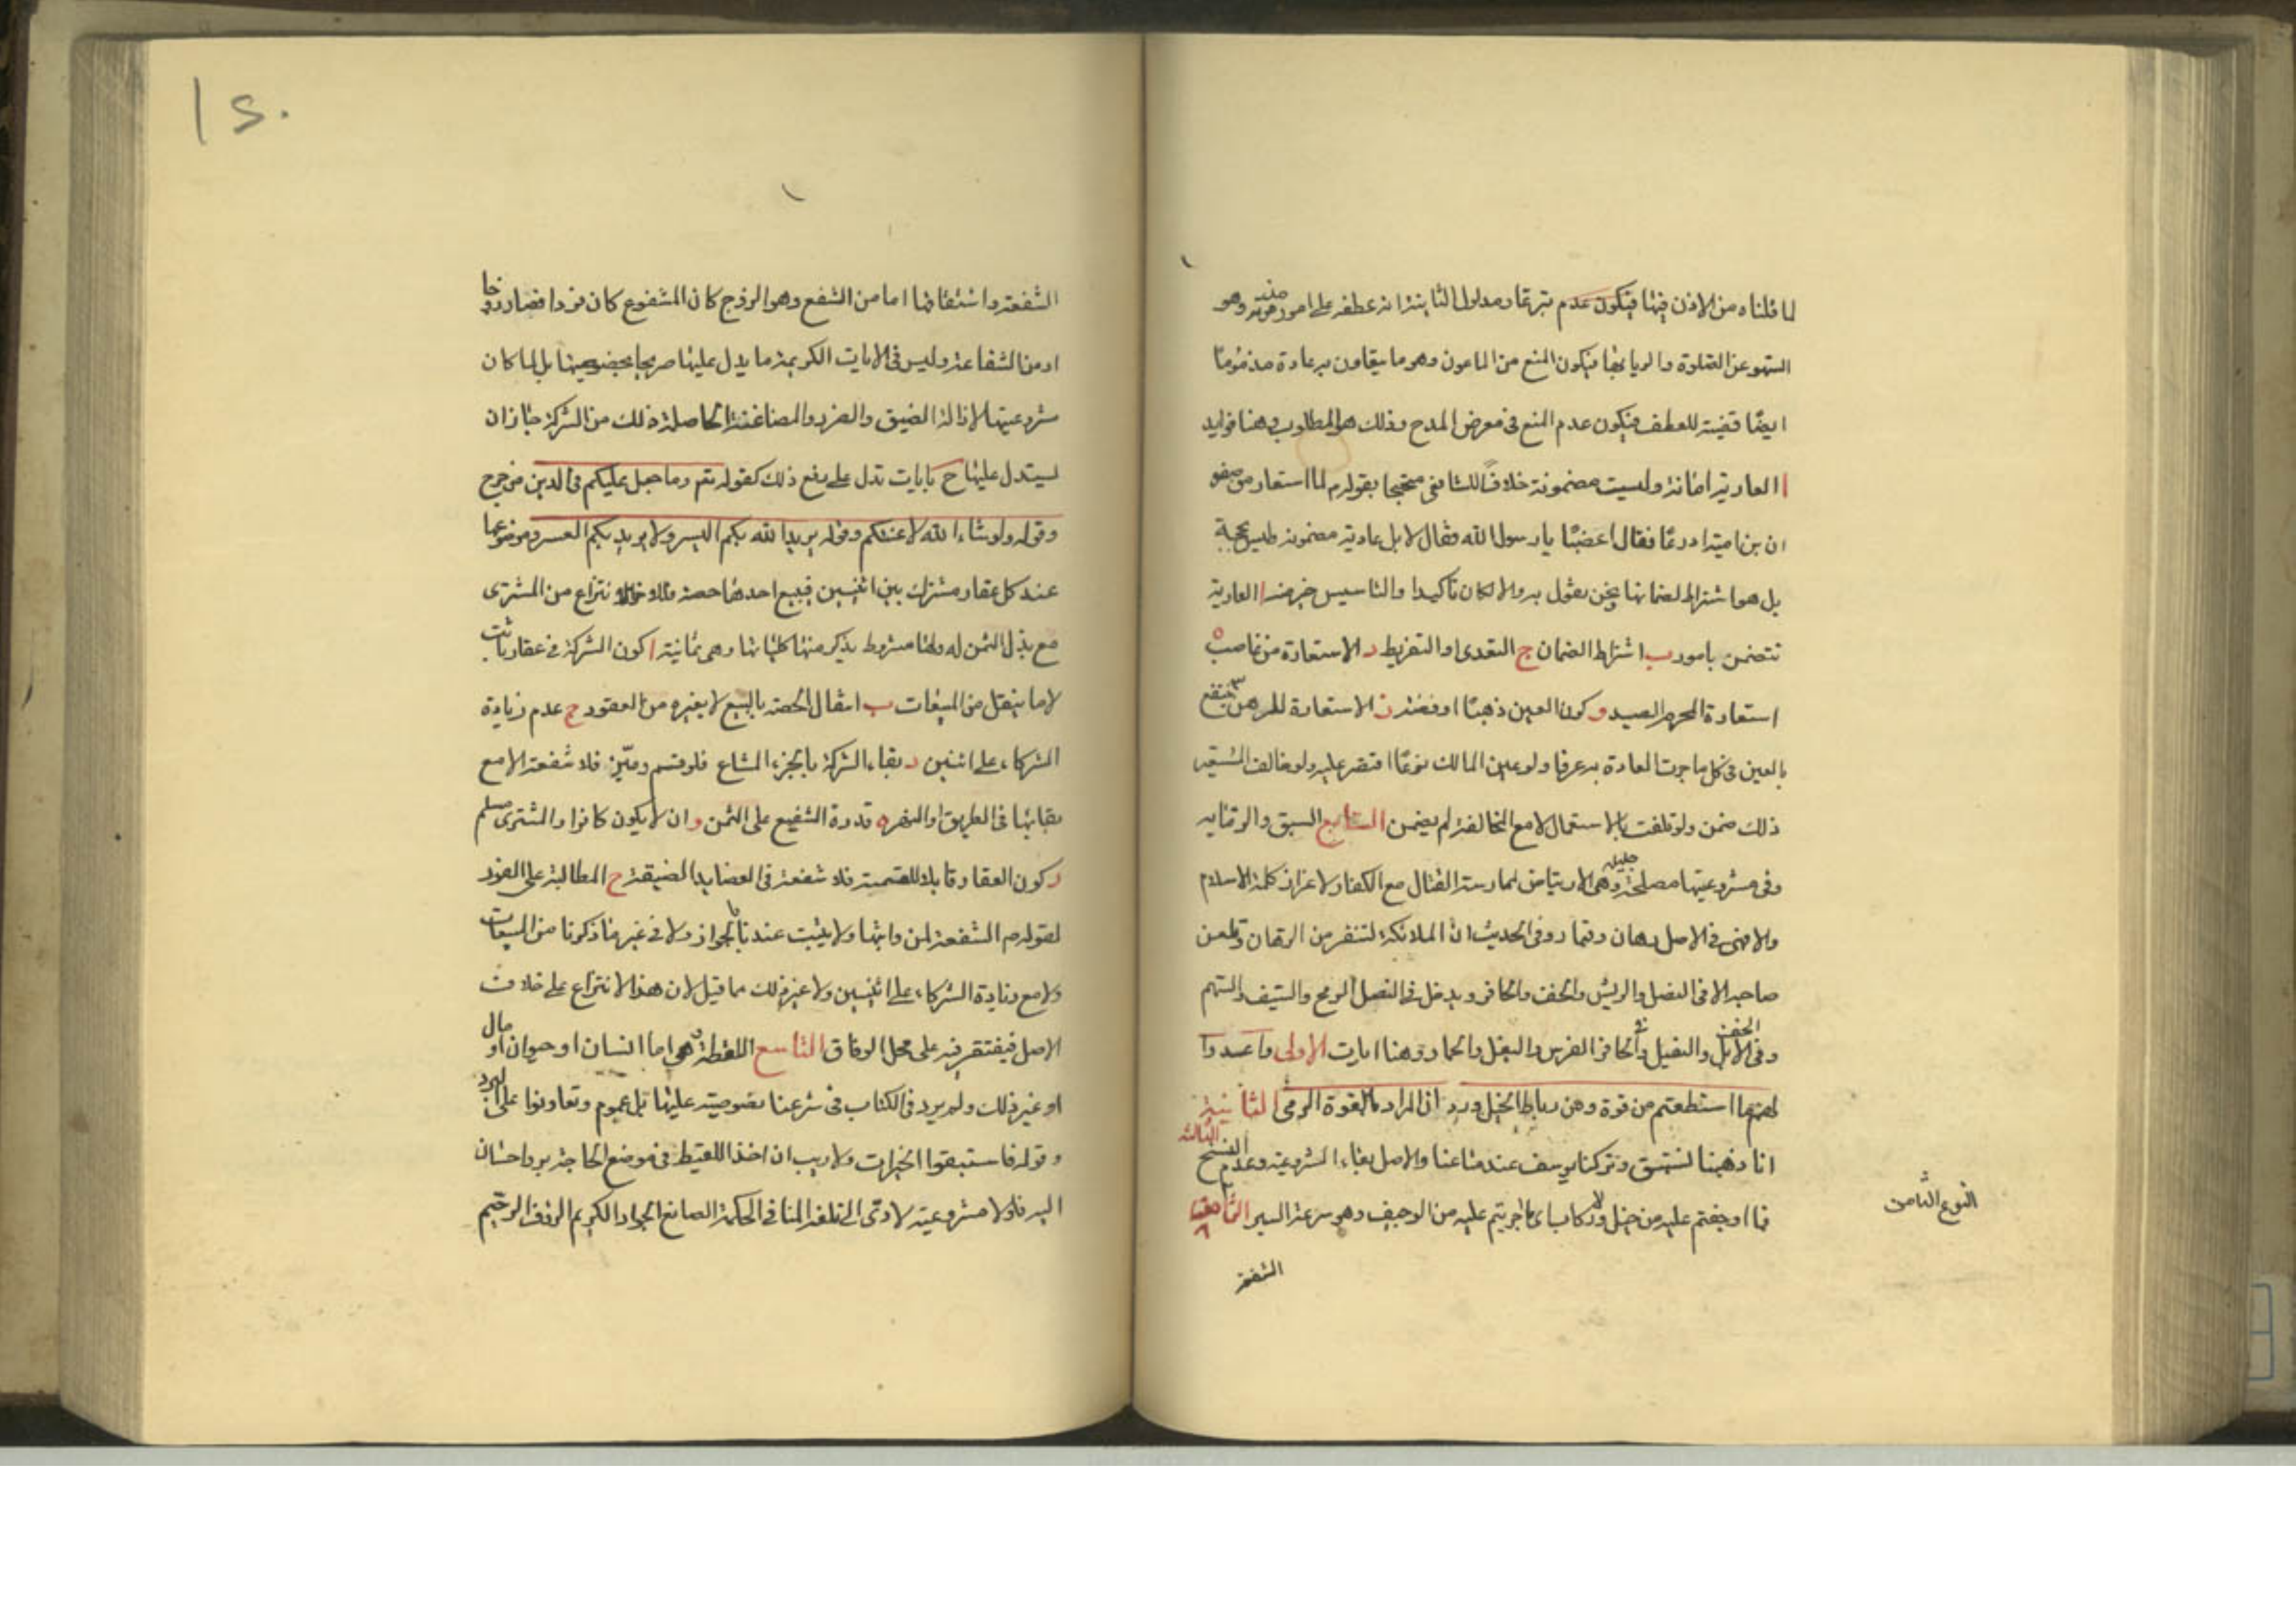 لما قلناه من الاذن فيها فيكون عدم تبرعها ومدلول الثانية انه عطفه على امور مذمومة منه وهو
السهو عن الصلوة والريا بها فيكون المنع من الماعون وهو ما يتعاون به عادة مذموما
ايضا قضية للعطف فيكون عدم المنع فى معرض المدح وذلك هو المطلوب وهنا فوايد
ا العارية امانة وليست مضمونة خلافا للشافعى محتجا بقوله م لما استعار من صفو
ان بن امية ادرعا فقال اغصبا يا رسول الله فقال لا بل عارية مضمونة وليس بحجة
بل هو اشتراط لضمانها ونحن نقول به والا لكان تاكيدا والتاسيس خير منه ا العارية
تتضمن بامور ب اشتراط الضمان ج التعدى او التفريط د الاستعارة من غاصب ه
استعارة المحرم الصيد و كون العين ذهبا او فضة ز الاستعارة للرهن ٣ ينتفع
بالعين فى كل ما جرت العادة به عرفا ولو عين المالك نوعا اقتصر عليه ولو خالف المستعير
ذلك ضمن ولو تلفت بالاستعمال لا مع المخالفة لم يضمن السابع السبق والرماية
وفى مشروعيتها مصلحة جليلة وهى الارتياض لممارسة القتال مع الكفار ولاعزاز كلمة الاسلام
والا فهى فى الاصل رهان وقمار وفى الحديث ان الملائكة لتنفر من الرهان وتلعن
صاحبه الا فى النصل والريش والخف والحافر ويدخل فى النصل الرمح والسيف والسهم
وفى الخف الابل والفيل وفى الحافر الفرس والبغل والحمار وهنا ايات الاولى واعدوا
لهم ما استطعتم من قوة ومن رباط الخيل ورد ان المراد بالقوة الرمى الثانية
انا ذهبنا نستبق وتركنا يوسف عند متاعنا والاصل بقاء المشروعية وعدم النسخ الثالثة
فما اوجفتم عليه من خيل ولا ركاب اى ما اجريتم عليه من الوجيف وهو سرعة السير الثامن
النوع الثامن
الشفعة
١٢٠
الشفعة واشتقاقها اما من الشفع وهو الزوج كان المشفوع كان فردا فصار زوجا
او من الشفاعة وليس فى الايات الكريمة ما يدل عليها صريحا بخصوصيتها بل لما كان
مشروعيتها لازالة الضيق والضرر والمضاغنة الحاصلة ذلك من الشركة جاز ان
يستدل عليها ح بايات تدل على رفع ذلك كقوله تعم وما جعل عليكم فى الدين من حرج
وقوله ولو شاء الله لاعنتكم وقوله يريد الله بكم اليسر ولا يريد بكم العسر وموضوعها
عند كل عقار مشترك بين اثنين فيبيع احدهما حصته فللاخر الانتزاع من المشترى
مع بذل الثمن له ولها شروط يذكر منها كلياتها وهى ثمانية ا كون الشركة فى عقار ثابت
لا ما ينقل من المبيعات ب انتقال الحصة بالبيع لا بغيره من العقود ج عدم زيادة
الشركاء على اثنين د بقاء الشركة بالجزء المشاع فلو قسم وميز فلا شفعة الا مع
بقائها فى الطريق او النهر ه قدرة الشفيع على الثمن و ان لا يكون كافرا والمشترى مسلم
ز كون العقار قابلا للقسمة فلا شفعة فى العضايد الضيقة ح المطالبة على الفور
لقوله م الشفعة لمن واثبها ولا يثبت عندنا بالجواز ولا فى غير ما ذكرنا من المبيعات
ولا مع زيادة الشركاء على اثنين ولا غير ذلك مما قيل لان هذا الانتزاع على خلاف
الاصل فيقتصر فيه على محل الوفاق التاسع اللقطة وهى اما انسان او حيوان او مال
او غير ذلك ولم يرد فى الكتاب فى شرعنا بخصوصية عليها بل عموم وتعاونوا على البر
وقوله فاستبقوا الخيرات ولا ريب ان اخذ اللقيط فى موضع الحاجة بر واحسان
اليه فلولا مشروعيته لادى الى تلفه المنافى لحكمة الصانع الجواد الكريم الرؤف الرحيم